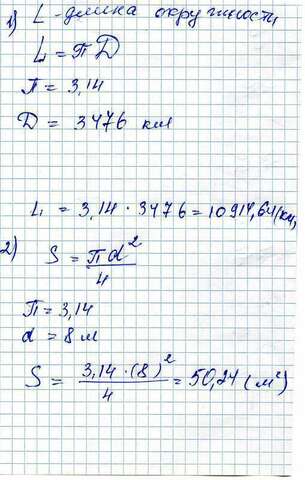 1) L - длина окружности
L = πD
π = 3,14
D = 3476 км
L = 3,14 · 3476 = 10914,64 (км)
2) S = πd²/4
π = 3,14
d = 8 м
S = 3,14 · (8)²/4 = 50,24 (м²)